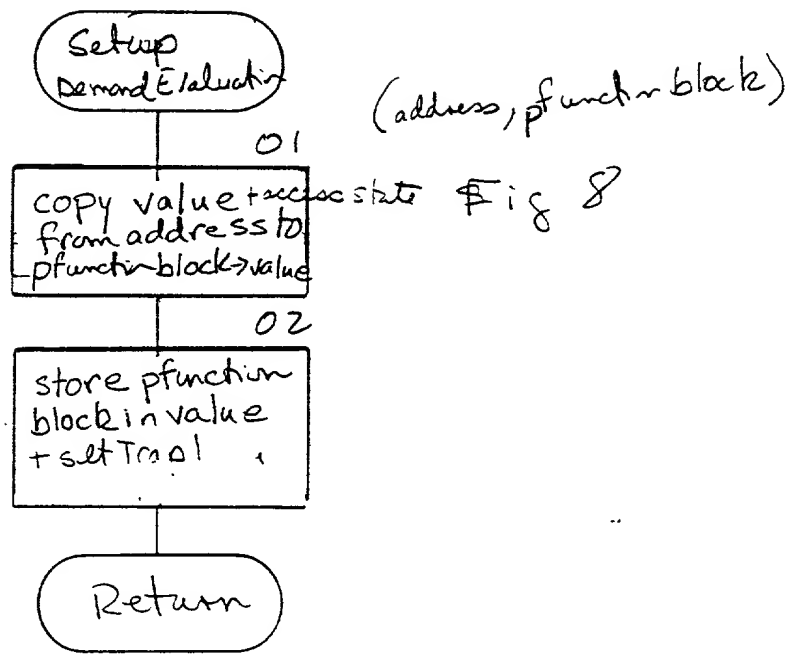 Setup
Demand Evaluation
(address, pfunction block)
01
copy value + access state
from address to
pfunction block → value
Fig 8
02
store pfunction
block in value
+ set Trap1
Return